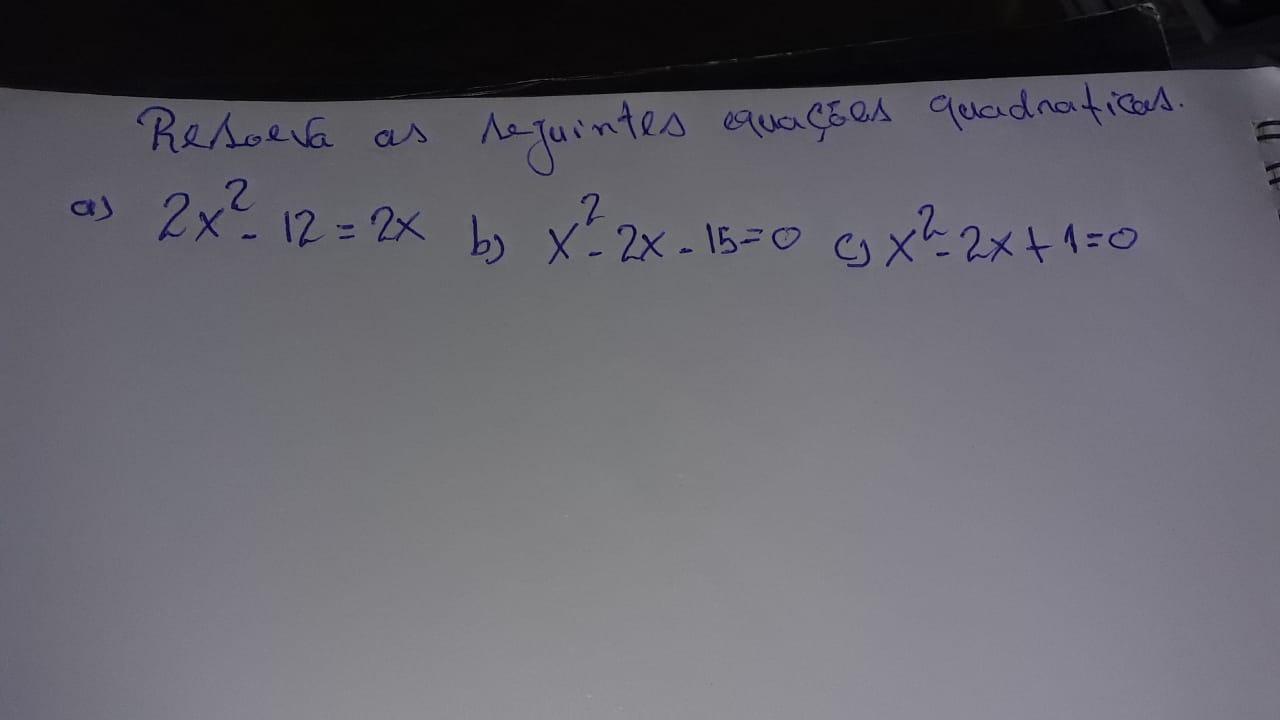 Resolva as seguintes equações quadraticas.
a) 2x² - 12 = 2x b) x² - 2x - 15 = 0 c) x² - 2x + 1 = 0